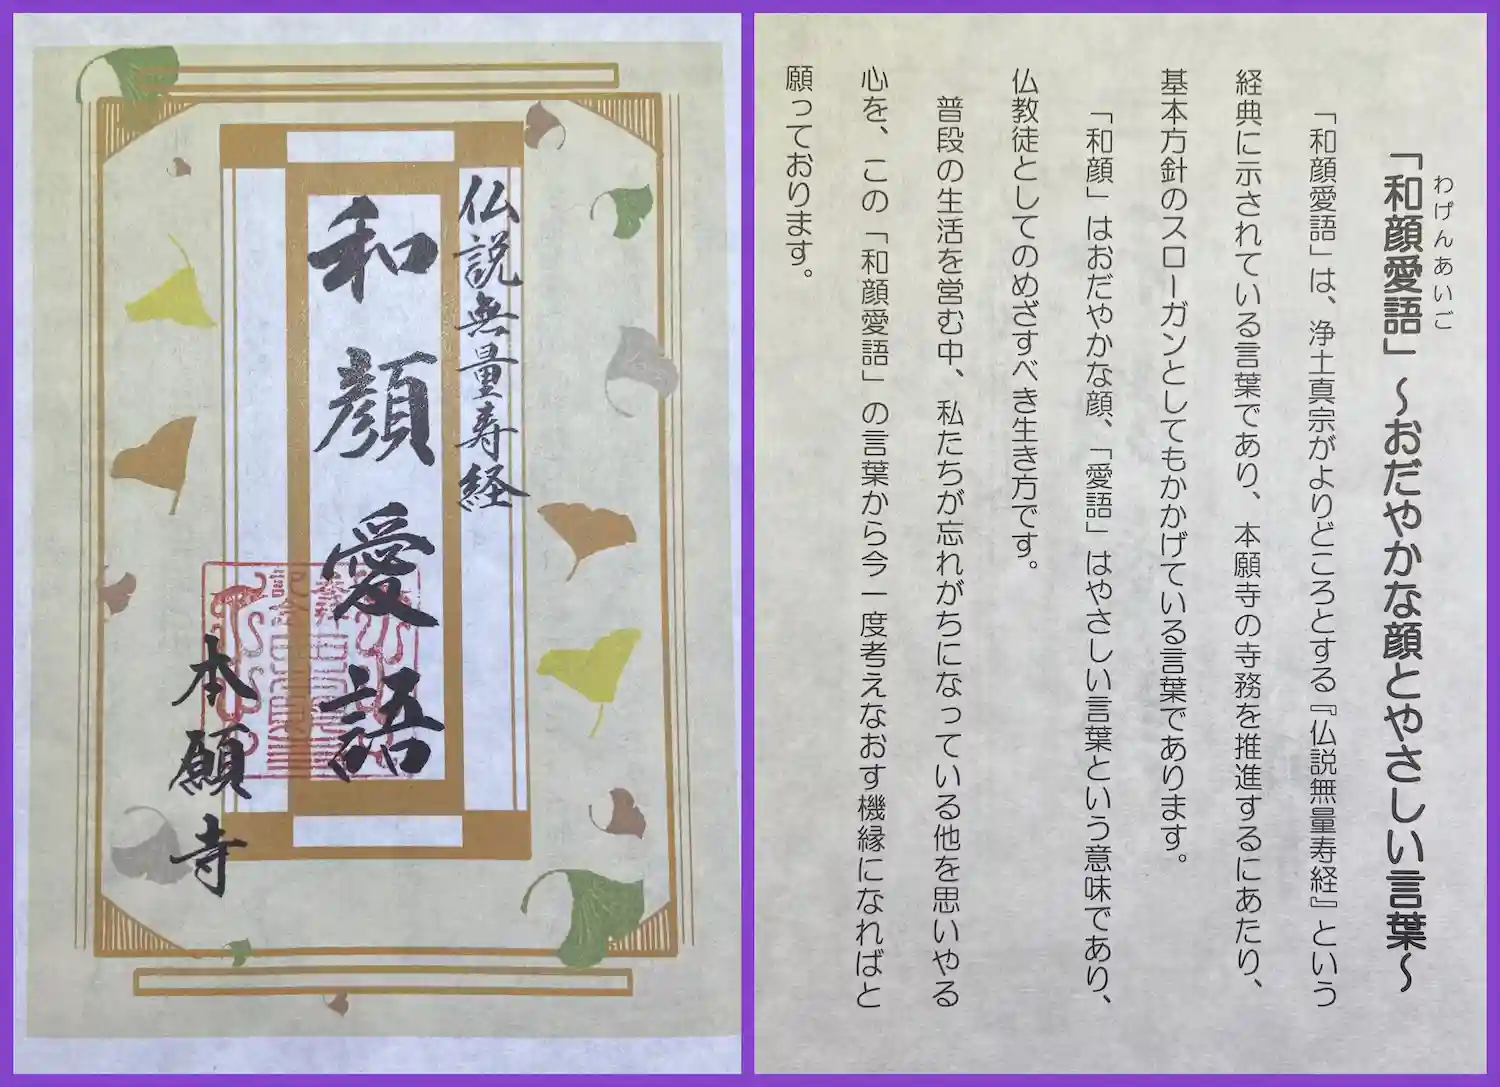 仏説無量寿経
和顔愛語
本願寺
わげんあいご
「和顔愛語」〜おだやかな顔とやさしい言葉〜
「和顔愛語」は、浄土真宗がよりどころとする『仏説無量寿経』という
経典に示されている言葉であり、本願寺の寺務を推進するにあたり、
基本方針のスローガンとしてもかかげている言葉であります。
「和顔」はおだやかな顔、「愛語」はやさしい言葉という意味であり、
仏教徒としてのめざすべき生き方です。
普段の生活を営む中、私たちが忘れがちになっている他を思いやる
心を、この「和顔愛語」の言葉から今一度考えなおす機縁になればと
願っております。